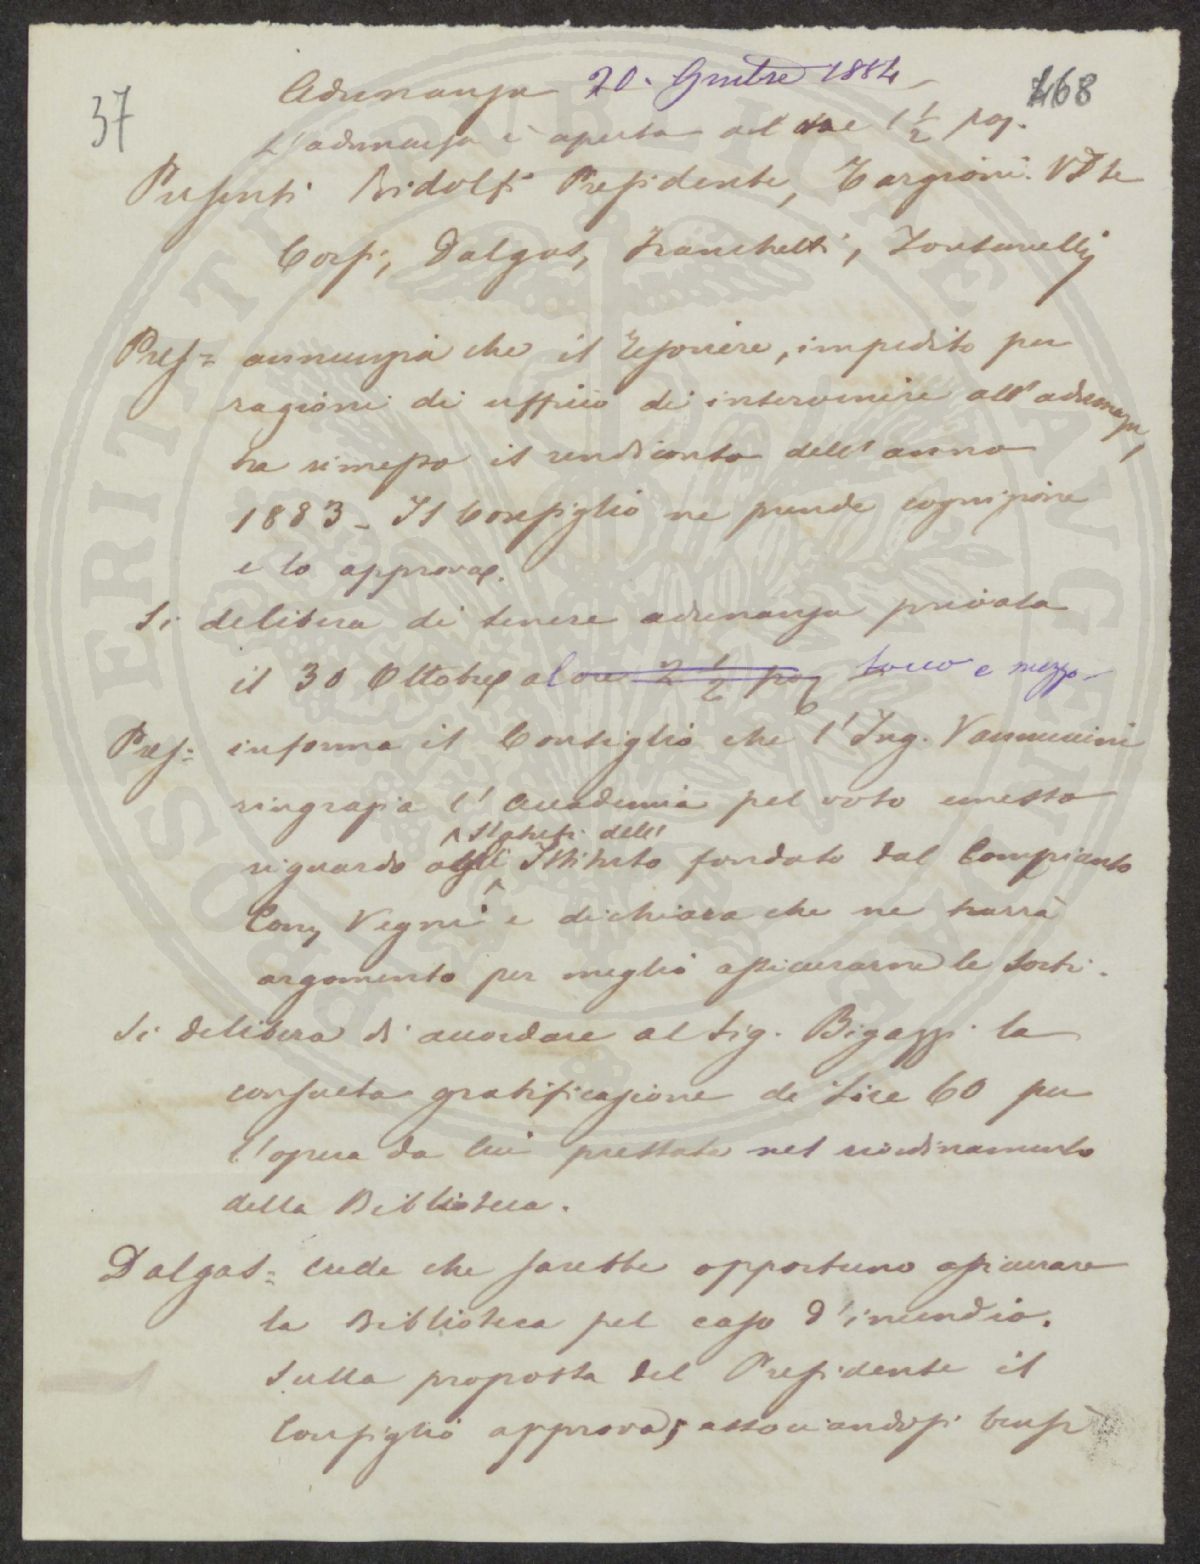 37
468
Adunanza 20. Gmbre 1884
L'adunanza è aperta al ore 1 1/2 poz.
Presenti Ridolfi Presidente, Targioni VPte
Corsi, Dalgas, Franchetti, Fontanelli
Pres= annunzia che il Tesoriere, impedito per
ragioni di ufficio di intervenire all'adunanza,
ha rimesso il rendiconto dell'anno
1883 - Il Consiglio ne prende cognizione
e lo approva.
Si delibera di tenere adunanza privata
il 30 Ottobre al ore 2 1/2 poz tocco e mezzo-
Pres= informa il Consiglio che l'Ing. Vannuccini
ringrazia l'Accademia pel voto emesso
riguardo agli Istituto fondato dal Compianto
Cony Vegni e dichiara che ne trarrà
argomento per meglio assicurarne le sorti.
Si delibera di accordare al Sig. Bigazzi la
consueta gratificazione di Lire 60 per
l'opera da lui prestata nel riordinamento
della Biblioteca.
Dalgas= crede che sarebbe opportuno assicurare
la Biblioteca pel caso d'incendio.
Sulla proposta del Presidente il
Consiglio approva, associandosi bensì
PROSPERITATI PUBLICAE AUGENDAE